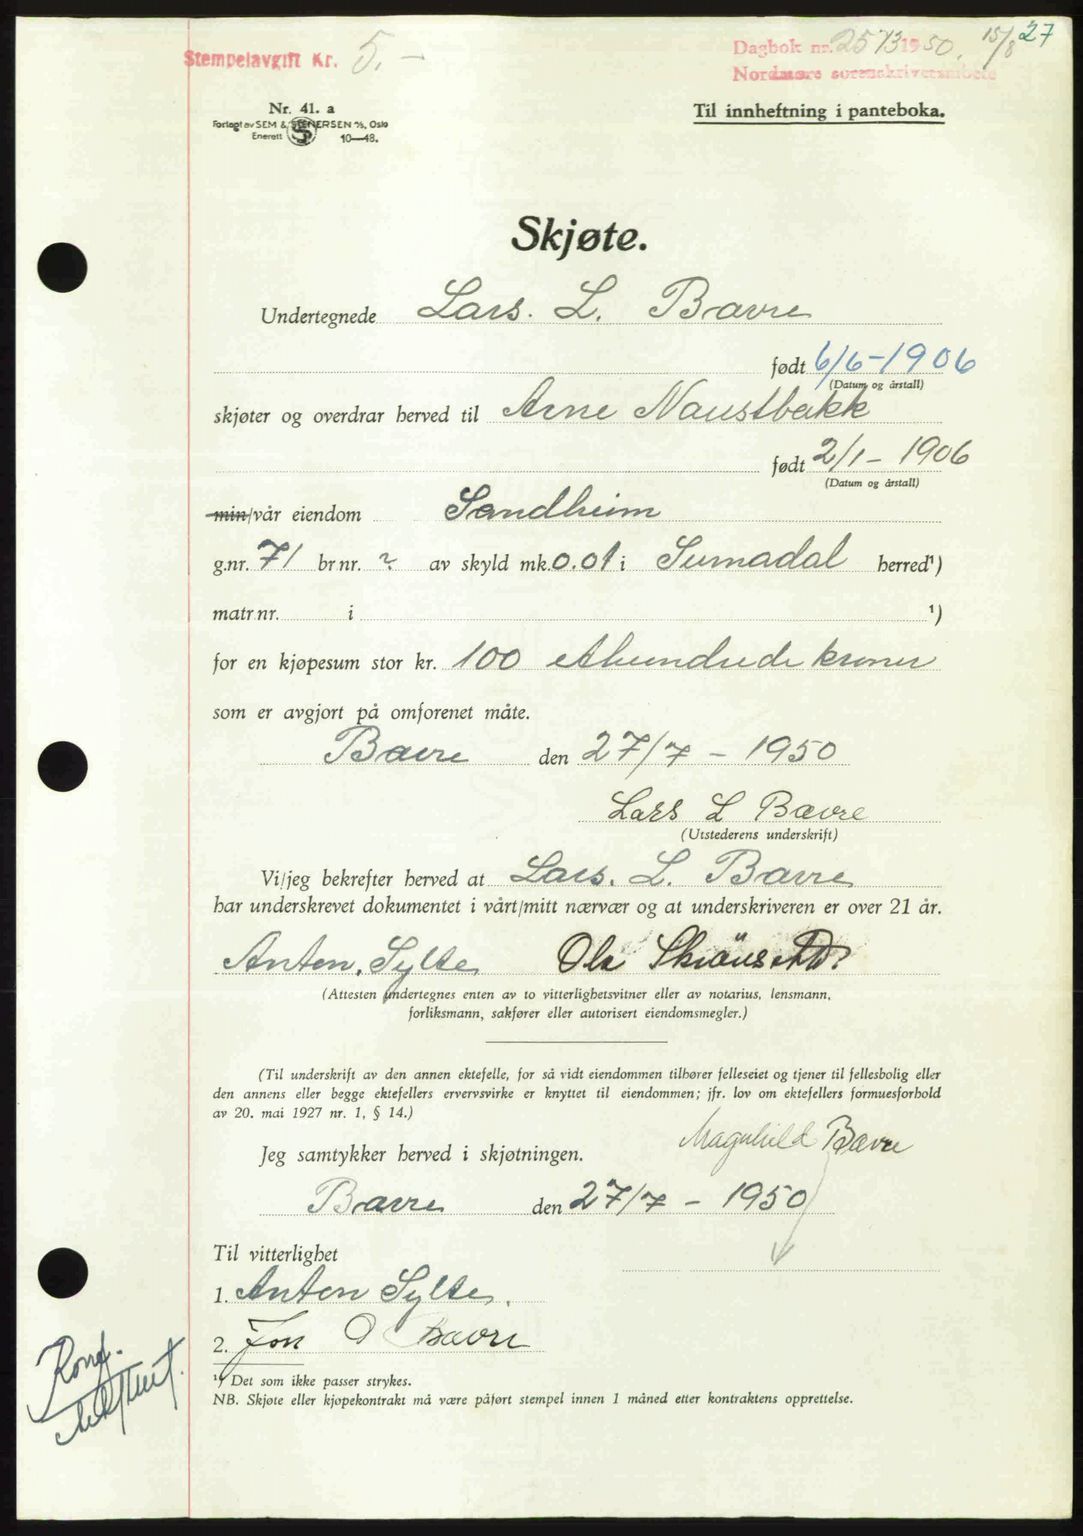 Stempelavgift Kr. 5.-
Dagbok nr. 2573 1950. 15/8 27
Nordmøre sorenskriverembete
Nr. 41. a
Forlagt av SEM & STENERSEN A/S, Oslo
Enerett 10—48.
Til innheftning i panteboka.
Skjøte.
Undertegnede Lars. L. Bævre
født 6/6-1906
(Datum og årstall)
skjøter og overdrar herved til Arne Naustbakk
født 2/1-1906
(Datum og årstall)
min/vår eiendom Sandheim
g.nr. 71 br.nr. ? av skyld mk. 0.01 i Surnadal herred¹)
matr.nr. i ¹)
for en kjøpesum stor kr. 100 Ahundrede kroner
som er avgjort på omforenet måte.
Bævre den 27/7 - 1950
Lars L Bævre
(Utstederens underskrift)
Vi/jeg bekrefter herved at Lars. L. Bævre
har underskrevet dokumentet i vårt/mitt nærvær og at underskriveren er over 21 år.
Anton. Sylte Ola
(Attesten undertegnes enten av to vitterlighetsvitner eller av notarius, lensmann,
forliksmann, sakfører eller autorisert eiendomsmegler.)
(Til underskrift av den annen ektefelle, for så vidt eiendommen tilhører felleseiet og tjener til fellesbolig eller
den annens eller begge ektefellers ervervsvirke er knyttet til eiendommen; jfr. lov om ektefellers formuesforhold
av 20. mai 1927 nr. 1, § 14.)
Magnhild Bævre
Jeg samtykker herved i skjøtningen.
Bævre den 27/7 - 1950
Til vitterlighet
1. Anton Sylte.
2. Jon O Bævre
¹) Det som ikke passer strykes.
NB. Skjøte eller kjøpekontrakt må være påført stempel innen 1 måned etter kontraktens opprettelse.
Konf.